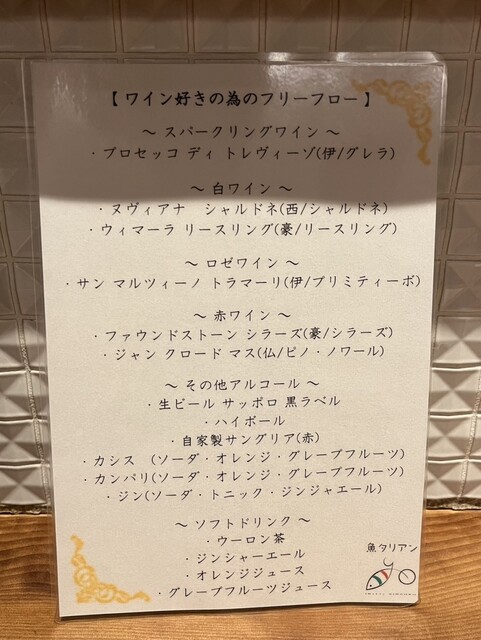 【 ワイン好きの為のフリーフロー 】
～ スパークリングワイン ～
・プロセッコ ディ トレヴィーゾ(伊/グレラ)
～ 白ワイン ～
・ヌヴィアナ　シャルドネ(西/シャルドネ)
・ウィマーラ リースリング(豪/リースリング)
～ ロゼワイン ～
・サン マルツィーノ トラマーリ(伊/プリミティーボ)
～ 赤ワイン ～
・ファウンドストーン シラーズ(豪/シラーズ)
・ジャン クロード マス(仏/ピノ・ノワール)
～ その他アルコール ～
・生ビール サッポロ 黒ラベル
・ハイボール
・自家製サングリア(赤)
・カシス　(ソーダ・オレンジ・グレープフルーツ)
・カンパリ(ソーダ・オレンジ・グレープフルーツ)
・ジン(ソーダ・トニック・ジンジャエール)
～ ソフトドリンク ～
・ウーロン茶
・ジンシャーエール
・オレンジジュース
・グレープフルーツジュース
魚タリアン